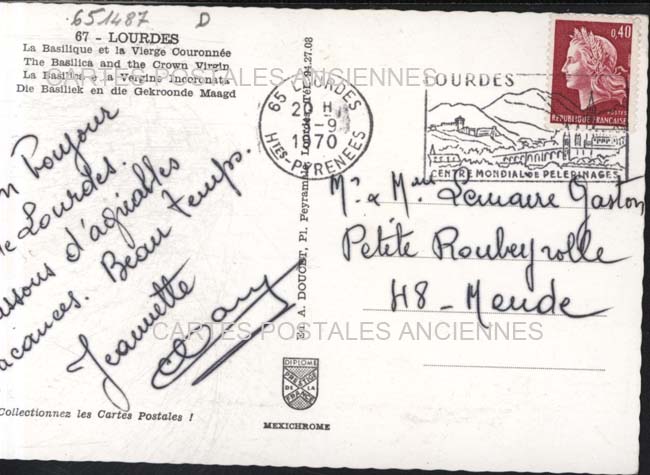 651487 D
67 - LOURDES
La Basilique et la Vierge Couronnée
The Basilica and the Crown Virgin
La Basilica e la Vergine Incoronata
Die Basiliek en die Gekroonde Maagd
CARTES POSTALES ANCIENNES
n Bonjour
de Lourdes.
ssons d'agréables
acances. Beau temps.
Jeannette
Collectionnez les Cartes Postales !
Ed. A. DOUCET, Pl. Peyramale, Lourdes, Tél. 94.27.03
DIPLOME
PRESTIGE
DE LA
FRANCE
MEXICHROME
65 LOURDES
20 H
-9
1970
Htes-PYRENEES
LOURDES
CENTRE MONDIAL DE PELERINAGES
0,40
POSTES
REPUBLIQUE FRANÇAISE
Mr & Mme Lemaire Gaston
Petite Roubeyrolle
48 - Mende
CARTES POSTALES ANCIENNES